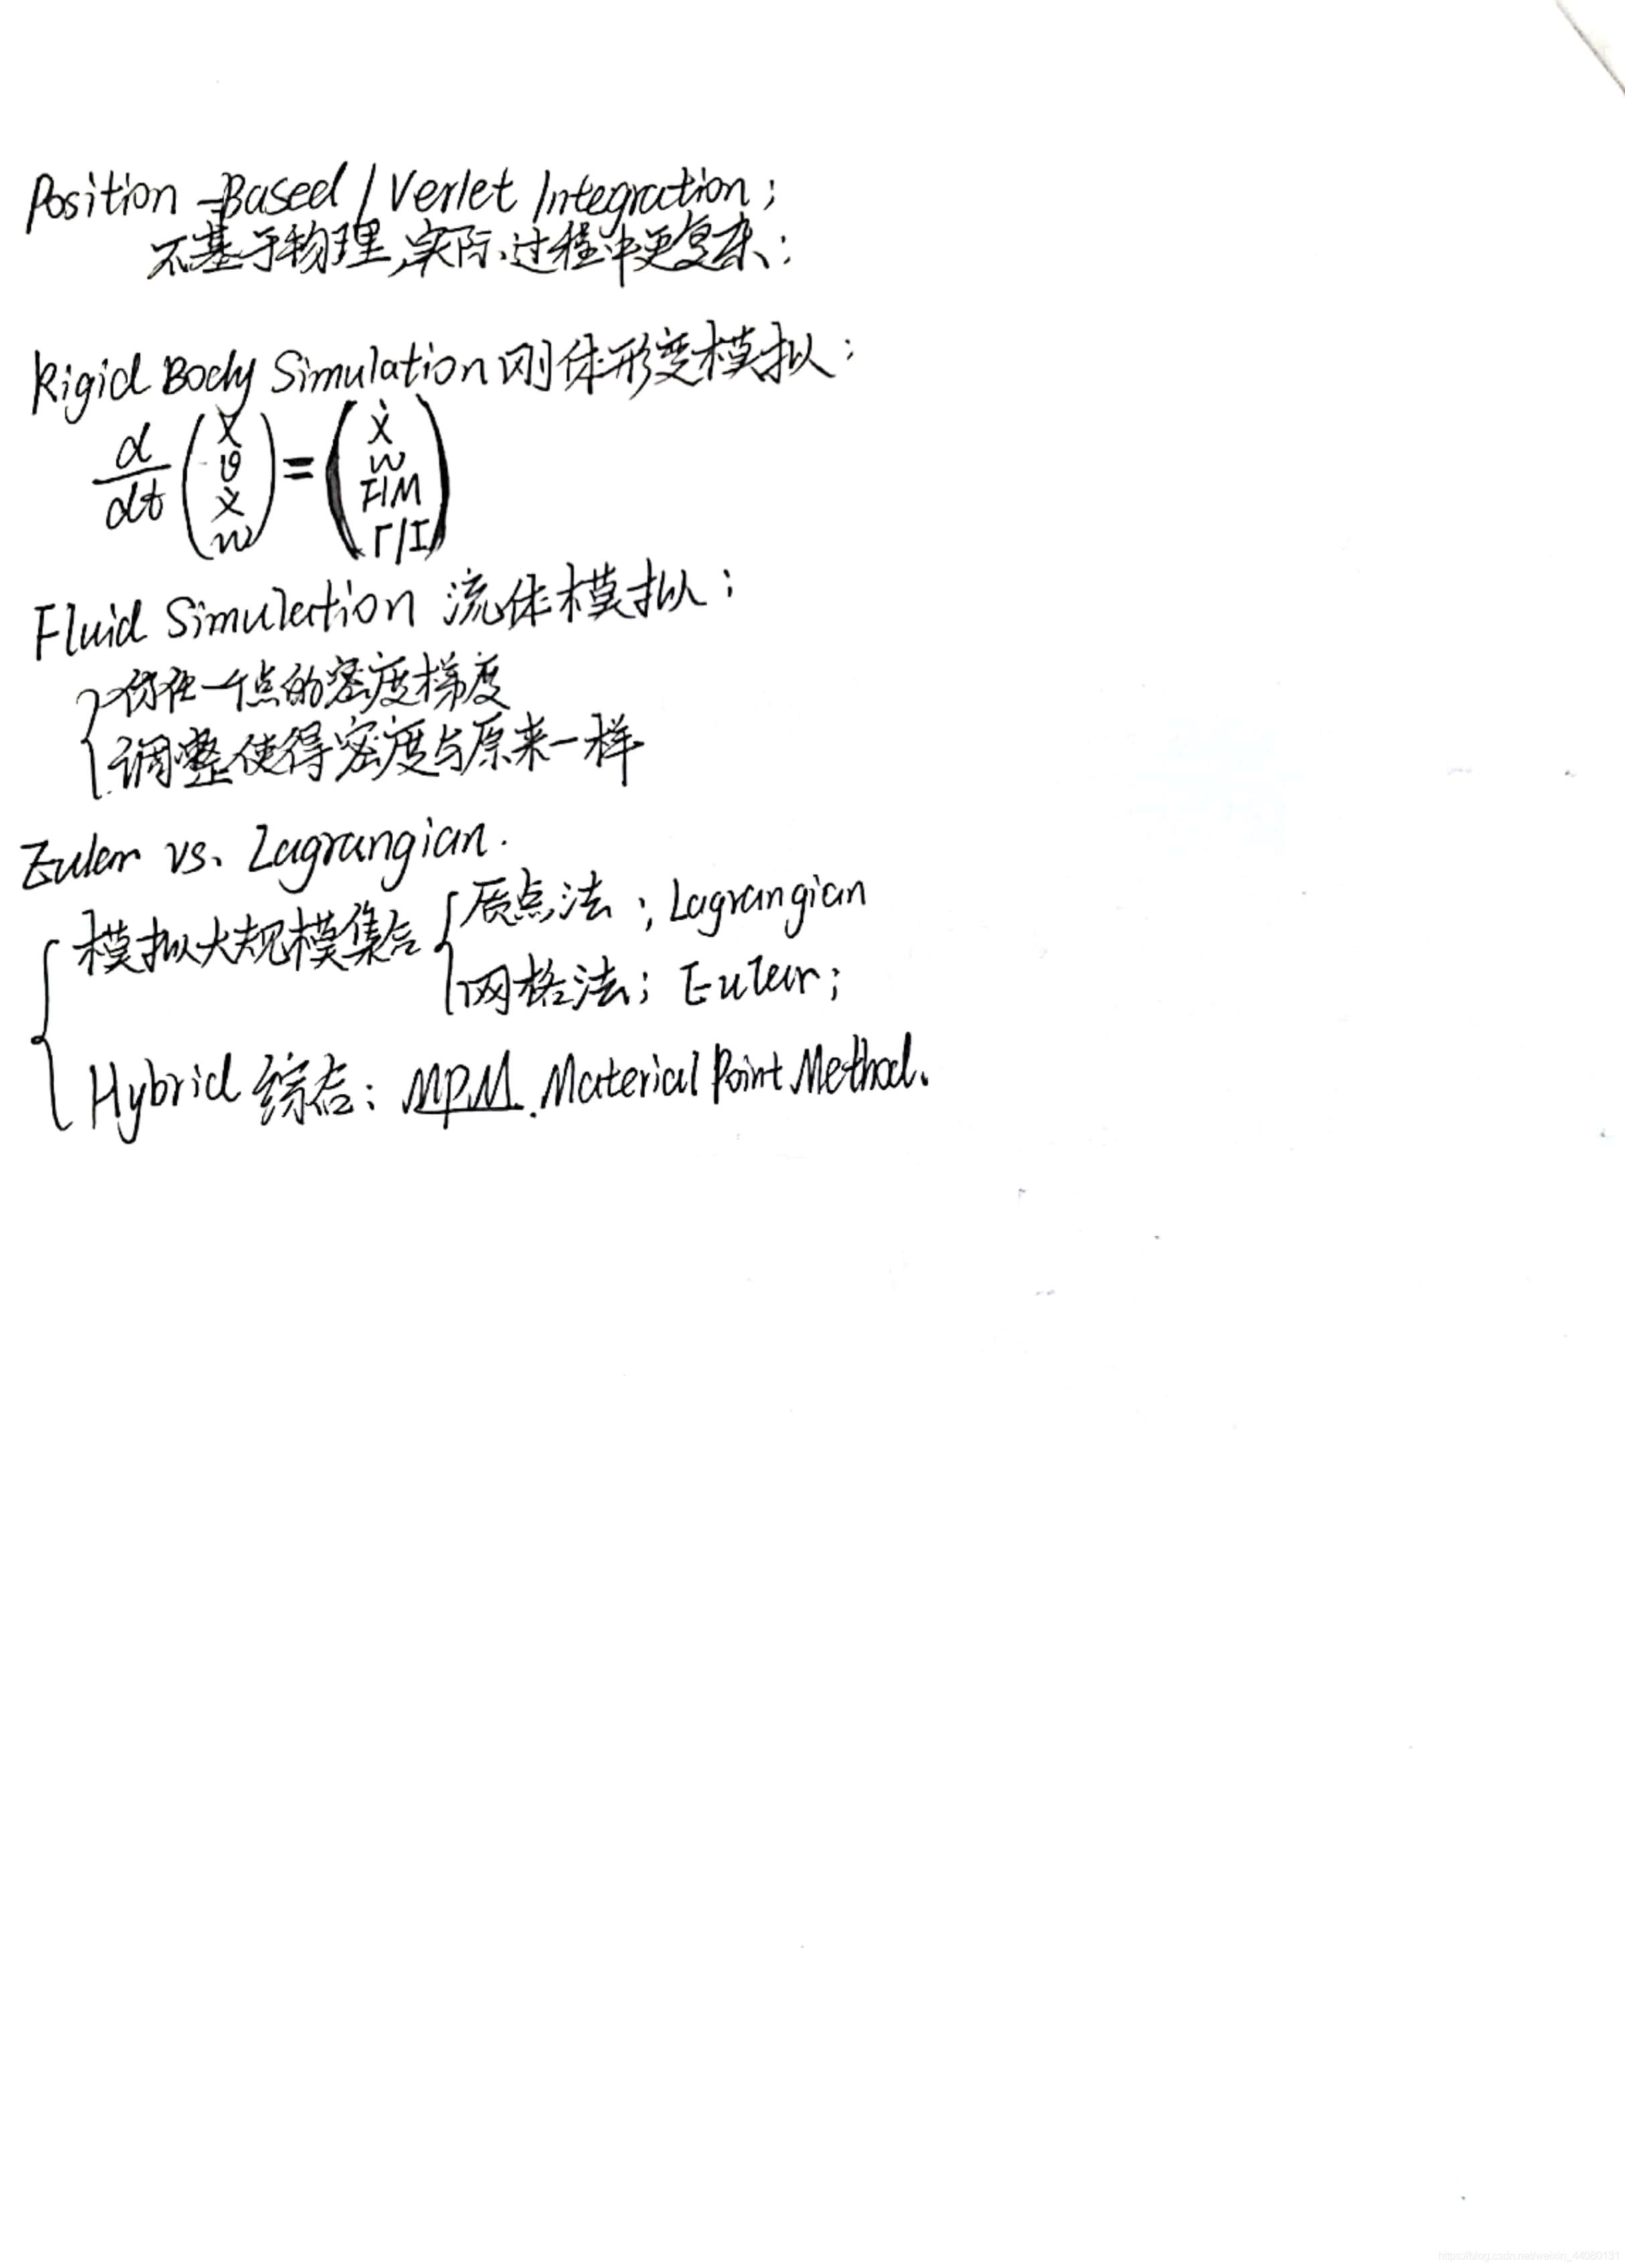 Position-Based / Verlet Integration;
不基于物理,实际过程中更复杂;
Rigid Body Simulation 刚体形变模拟:
d/dt (X θ Ẋ ω) = (Ẋ ω F/M Γ/I)
Fluid Simulation 流体模拟:
任一点的密度梯度
调整使得密度与原来一样
Euler vs. Lagrangian.
模拟大规模集合 质点法; Lagrangian
网格法; Euler;
Hybrid 综合: MPM. Material Point Method.
https://blog.csdn.net/weixin_44080131